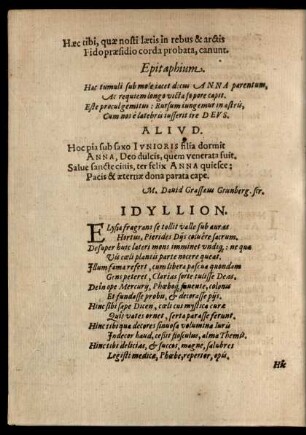 Hæc tibi, quæ nosti lætis in rebus & arctis
Fido præsidio corda probata, canunt.
Epitaphium.
Hac tumuli sub mole jacet decus ANNA parentum,
Ac requiem longo victa sopore capit.
Este procul gemitus: Rursum jungemur in astris,
Cum nos è latebris jusserit ire DEVS.
ALIVD.
Hoc pia sub saxo IVNIORIS filia dormit
ANNA, Deo dulcis, quem venerata fuit.
Salve sancte cinis, ter felix ANNA quiesce;
Pacis & æternæ dona parata cape.
M. David Grassaeus Grunberg. sir.
IDYLLION.
ELysia fragrans se tollit valle sub auras
Hortus, Pierides Dijs coluêre sacrum.
Desuper huic lateri mons imminet undiq; ne qua
Vis cœli plantis parte nocere queat.
Illum fama refert, cum libera pascua quondam
Gens peteret, Clarias forte tulisse Deas.
Dein ope Mercurij, Phœboq; favente, colonis
Et fundasse probis, & decorasse pijs.
Hinc sibi sæpe Dicen, cœli cus mystica curæ
Quis vates ornet, serta parasse ferunt.
Hinc tibi quæ decores sinuosa volumina Iuris
Indecor haud, cessit flosculus, alma Themist.
Hinc tibi delicias, & succos, magne, salubres
Legisti medicæ, Phœbe, repertor, opis,
Hic